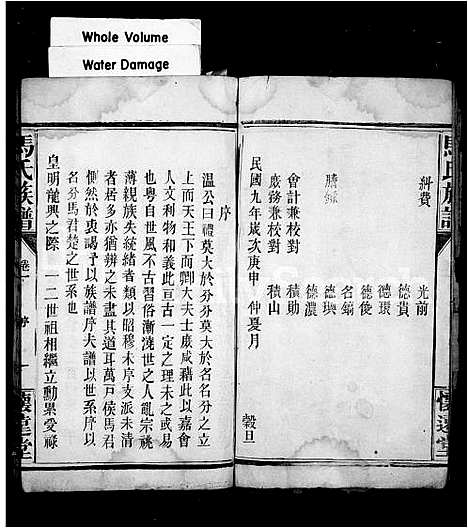 Whole Volume
Water Damage
馬氏族譜
糾費
光前
德貴
德環
德俊
謄錄
名鎬
德璵
德濃
會計兼校對 積勛
庶務兼校對 積山
民國九年歲次庚申 仲夏月 穀旦
序
溫公曰禮莫大於分分莫大於名名分之立
上而天王下而卿大夫士庶咸藉此以嘉會
人文利物和義此亘古一定之理未之或易
也粵自世風不古習俗漸澆世之人亂宗祧
薄親族失統緒者類以昭穆未序支派未清
者居多亦猶辨之未盡其道耳萬戶侯馬君
惻然於衷謁予以族譜序夫譜以世系序以
名分馬君楚之世系也
皇明龍興之際一二世祖相繼立勳累受祿
馬氏族譜
卷一
序
一
懷達堂